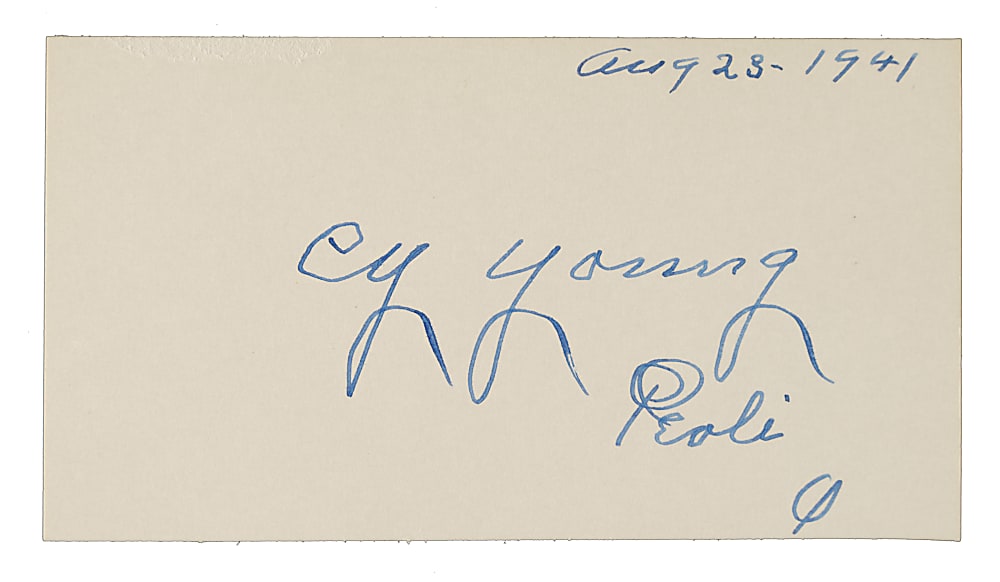 Aug 23- 1941
Cy Young
Peoli
O